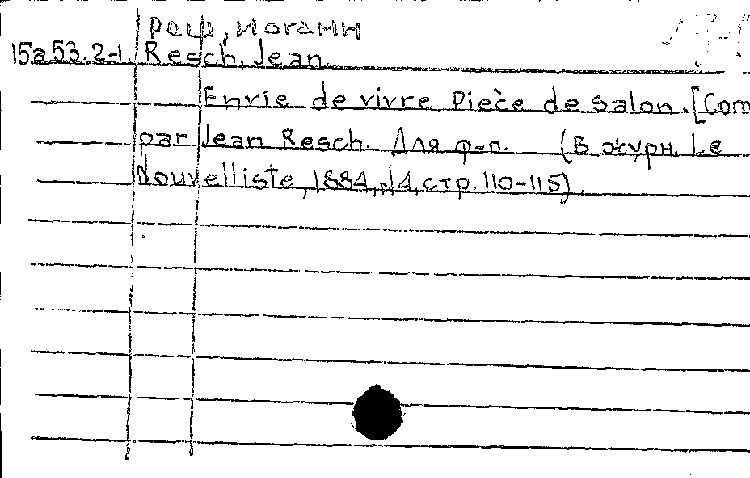 Реш, Иоганн
15а53.2-1. Resch, Jean.
Envie de vivre Pieće de salon. [Com
par Jean Resch. Для ф-п. (В журн. Le
Nouvelliste, 1884, 14, стр. 110-115).